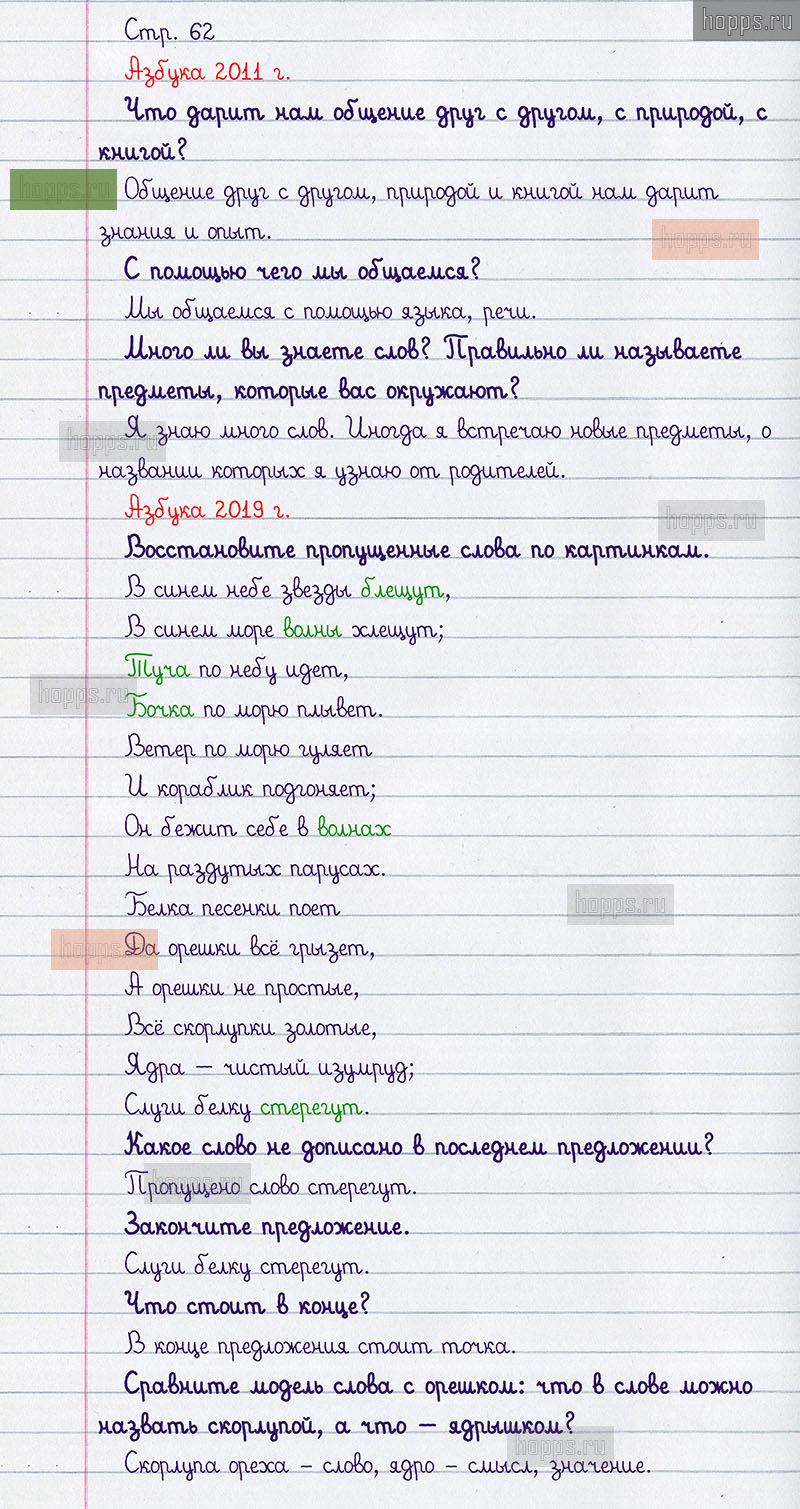 hopps.ru
Стр. 62
Азбука 2011 г.
Что дарит нам общение друг с другом, с природой, с
книгой?
hopps.ru
Общение друг с другом, природой и книгой нам дарит
знания и опыт.
hopps.ru
С помощью чего мы общаемся?
Мы общаемся с помощью языка, речи.
Много ли вы знаете слов? Правильно ли называете
предметы, которые вас окружают?
hopps.ru
Я знаю много слов. Иногда я встречаю новые предметы, о
названии которых я узнаю от родителей.
Азбука 2019 г.
hopps.ru
Восстановите пропущенные слова по картинкам.
В синем небе звезды блещут,
В синем море волны хлещут;
Туча по небу идет,
hopps.ru
Бочка по морю плывет.
Ветер по морю гуляет
И кораблик подгоняет;
Он бежит себе в волнах
На раздутых парусах.
hopps.ru
Белка песенки поет
hopps.ru
Да орешки всё грызет,
А орешки не простые,
Всё скорлупки золотые,
Ядра — чистый изумруд;
Слуги белку стерегут.
Какое слово не дописано в последнем предложении?
hopps.ru
Пропущено слово стерегут.
Закончите предложение.
Слуги белку стерегут.
Что стоит в конце?
В конце предложения стоит точка.
Сравните модель слова с орешком: что в слове можно
назвать скорлупой, а что — ядрышком?
hopps.ru
Скорлупа ореха – слово, ядро – смысл, значение.